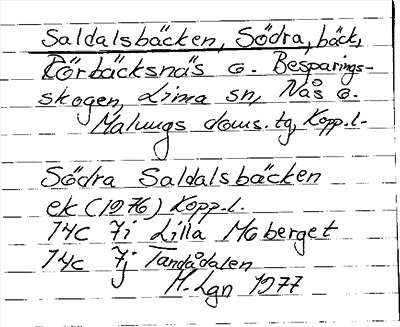 Saldalsbäcken, Södra, bäck,
Rörbäcksnäs o. Besparings-
skogen, Lima sn, Nås o.
Malungs doms. tg, Kopp.l.
Södra Saldalsbäcken
ek (1976) Kopp.l.
14c 7i Lilla Moberget
14c 7j Tandådalen
M. Lgn 1977